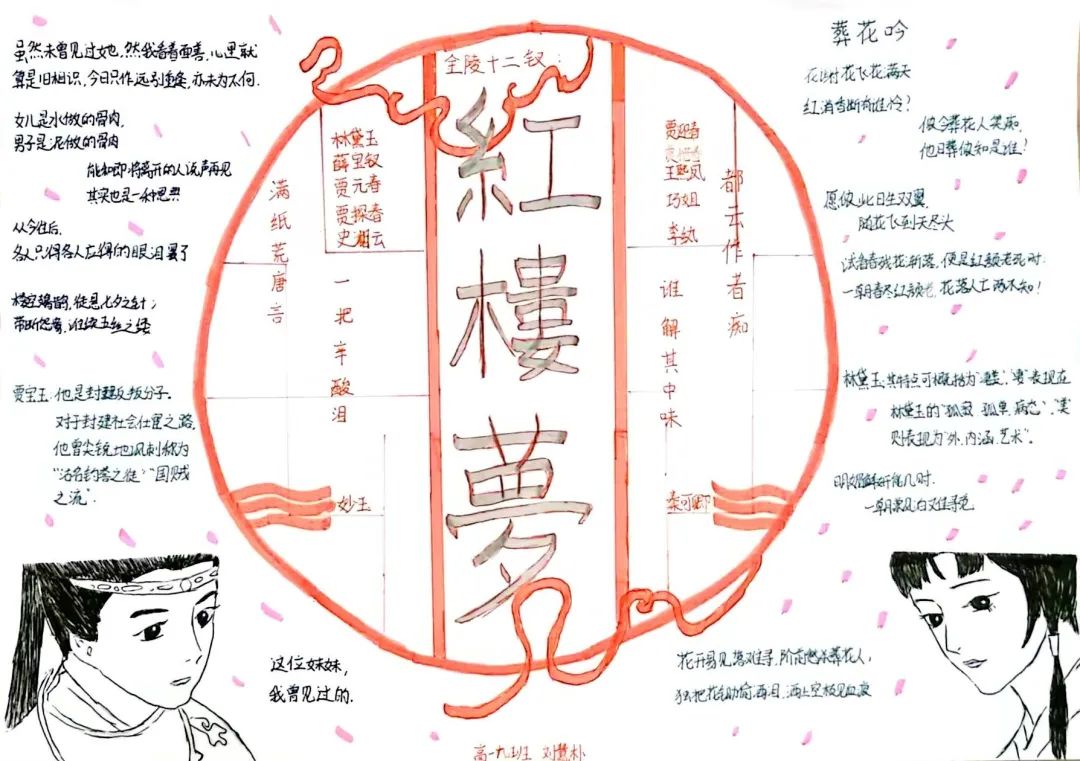 虽然未曾见过她,然我看着面善,心里就
算是旧相识,今日只作远别重逢,亦未为不可.
女儿是水做的骨肉,
男子是泥做的骨肉
能和即将离开的人说声再见
其实也是一种恩典
从今往后,
各人只得各人应得的眼泪罢了
贾宝玉:他是封建反叛分子.
对于封建社会仕宦之路,
他曾尖锐地讽刺称为
“沽名钓誉之徒”“国贼
之流”.
这位妹妹,
我曾见过的.
金陵十二钗:
林黛玉
薛宝钗
贾元春
贾探春
史湘云
妙玉
贾迎春
王熙凤
巧姐
李纨
秦可卿
紅樓夢
满纸荒唐言
一把辛酸泪
都云作者痴
谁解其中味
高一九班
葬花吟
花谢花飞花满天
红消香断有谁怜?
侬今葬花人笑痴,
他日葬侬知是谁!
愿侬此日生双翼,
随花飞到天尽头
试看春残花渐落,便是红颜老死时.
一朝春尽红颜老,花落人亡两不知!
林黛玉:其特点可概括为“悲”、“美”表现在
林黛玉的“孤傲 孤单 病态”、“美”
则表现为“外、内涵、艺术”.
明媚鲜妍能几时.
一朝漂泊难寻觅
花开易见落难寻,阶前愁杀葬花人,
独把花锄偷 泪,洒上空枝见血痕